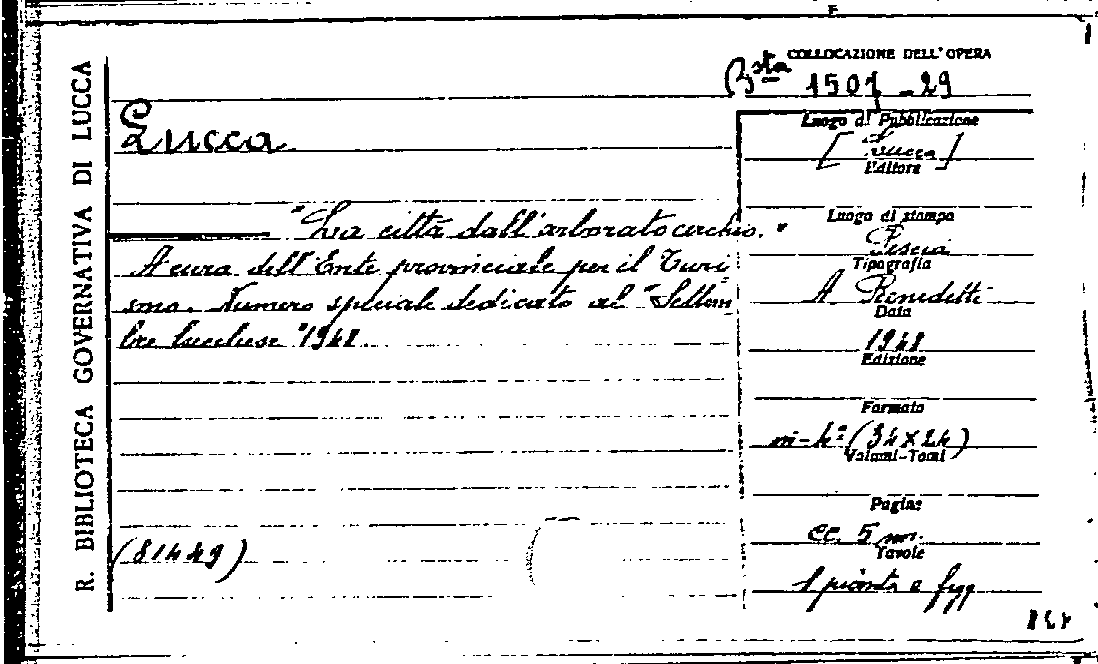 R. BIBLIOTECA GOVERNATIVA DI LUCCA
COLLOCAZIONE DELL'OPERA
Bsta 1507 - 29
Lucca
"La città dall'arborato cerchio."
A cura dell'Ente provinciale per il Turi
smo. Numero speciale dedicato al "Settem
bre lucchese" 1948.
(81449)
Luogo di Pubblicazione
[Lucca]
Editore
Luogo di stampa
Pescia
Tipografia
A Benedetti
Data
1948
Edizione
Formato
in-4º (34x24)
Volumi-Tomi
Pagine
cc. 5 nn.
Tavole
1 pianta e figg